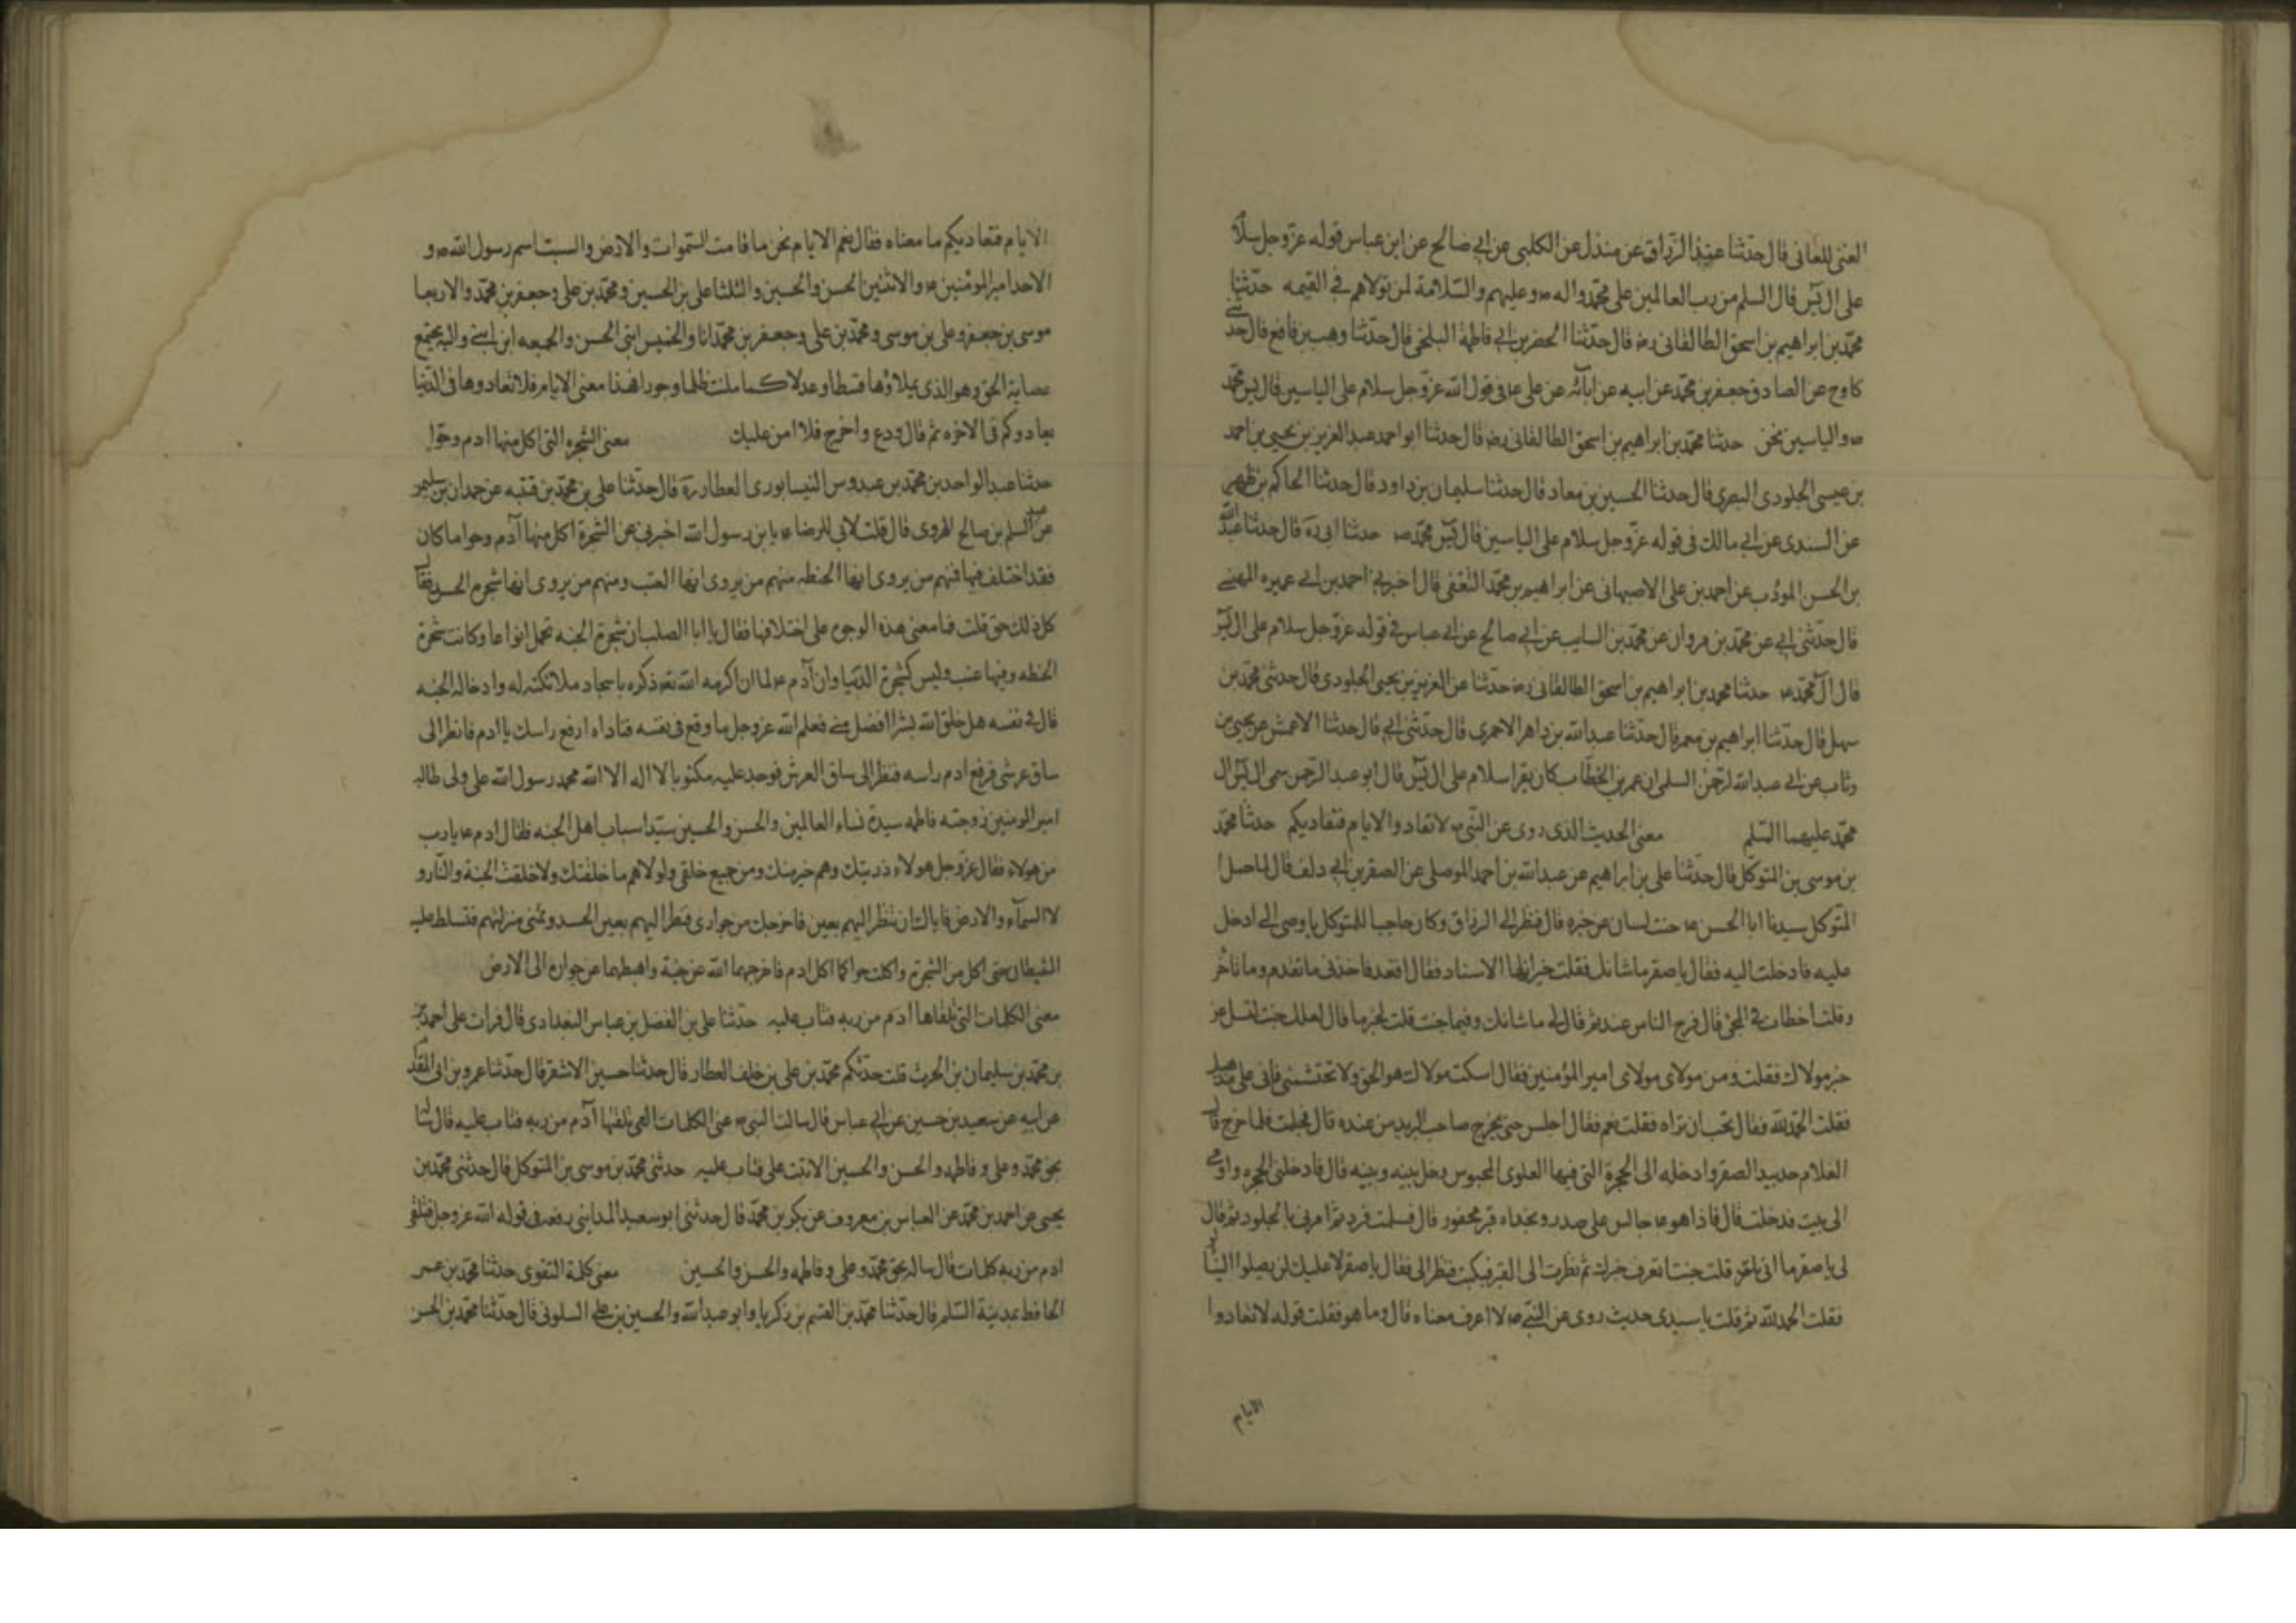 الغنى للمعانى قال حدثنا عبد الرزاق عن مندل عن الكلبى عن ابى صالح عن ابن عباس قوله عزوجل سلام
على ال يس قال السلم من رب العالمين على محمد واله ص وعليهم والسلامة لمن تولاهم فى القيمه حدثنا
محمد بن ابراهيم بن اسحق الطالقانى رض قال حدثنا الحضر بن ابى فاطمة البلخى قال حدثنا وهب بن نافع قال حدثنى
كادح عن الصادق جعفر بن محمد عن ابيه عن ابائه عن على ع فى قول الله عزوجل سلام على الياسين قال يس محمد
ص والياسين نحن حدثنا محمد بن ابراهيم بن اسحق الطالقانى رض قال حدثنا ابو احمد عبد العزيز بن يحيى بن احمد
بن عيسى الجلودى البصرى قال حدثنا الحسين بن معاد قال حدثنا سليمان بن داود قال حدثنا الحاكم بن ظهير
عن السندى عن ابى مالك فى قوله عزوجل سلام على الياسين قال يس محمد ص حدثنا ابى ره قال حدثنا عبد الله
بن الحسن المؤدب عن احمد بن على الاصبهانى عن ابراهيم بن محمد الثقفى قال اخبرنى احمد بن ابى عميره النهمى
قال حدثنى ابى عن محمد بن مروان عن محمد بن السايب عن ابى صالح عن ابى عباس فى قوله عزوجل سلام على ال يس
قال ال محمد ع حدثنا محمد بن ابراهيم بن اسحق الطالقانى رض حدثنا عن العزيز بن يحيى الجلودى قال حدثنى محمد بن
سهل قال حدثنا ابراهيم بن معمر قال حدثنا عبد الله بن داهر الاحمرى قال حدثنى ابى قال حدثنا الاعمش عن يحيى بن
وثاب عن ابى عبد الله الرحمن السلمى ان عمر بن الخطاب كان يقرا سلام على ال يس قال ابو عبد الرحمن سمى ال يس ال
محمد عليهما السلم معنى الحديث الذى روى عن النبى ص لاتعادوا الايام فتعاديكم حدثنا محمد
بن موسى بن المتوكل قال حدثنا على بن ابراهيم عن عبد الله بن احمد الموصلى عن الصقر بن ابى دلف قال لما حمل
المتوكل سيدنا ابا الحسن ع جئت لسان عن خبره قال فنظر الى الرزاق وكان حاجبا للمتوكل فاوصى الى ادخل
عليه فادخلت اليه فقال يا صقر ما شانك فقلت خير ايها الاستاد فقال اقعد فاخذنى ما تقدم وما تاخر
وقلت اخطات فى المجئ قال فرج الناس عنه ثم قال لى ما شانك وفيما جئت قلت لخير ما قال لعلك جئت تسل عن
خبر مولاك فقلت ومن مولاى مولاى امير المؤمنين فقال اسكت مولاك هو الحق ولا تحتشمنى فانى على مذهبك
فقلت الحمد لله فقال تحب ان تراه فقلت نعم فقال اجلس حتى يخرج صاحب البريد من عنده قال فجلست فلما خرج قال
الغلام خذ بيد الصقر وادخله الى الحجرة التى فيها العلوى المحبوس وخل بينه وبينه قال فادخلنى الحجره واومى
الى بيت فدخلت قال فاذا هو ع جالس على صدر وبحداه قبر محفور قال فسلمت فرد ثم امرنى بالجلود ثم قال
لى يا صقر ما اتى بك قلت جئت اتعرف خبرك ثم نظرت الى القبر فبكيت فنظر الى فقال يا صقر لا عليك لن يصلوا الينا
فقلت الحمد لله ثم قلت يا سيدى حديث روى عن النبى ص لا اعرف معناه قال وما هو فقلت قوله لاتعادوا
الايام
الايام فتعاديكم ما معناه فقال نعم الايام نحن ما قامت السموات والارض والسبت اسم رسول الله ص و
الاحد امير المؤمنين ع والاثنين الحسن والحسين والثلثا على بن الحسين ومحمد بن على وجعفر بن محمد والاربعا
موسى بن جعفر وعلى بن موسى ومحمد بن على وجعفر بن محمد انا والخميس ابنى الحسن والجمعه ابن ابنى واليه يجتمع
عصابة الحق وهو الذى يملاؤها قسطا وعدلا كما ملئت ظلما وجورا فهذا معنى الايام فلا تعادوها فى الدنيا
يعادوكم فى الاخره ثم قال ودع واخرج فلا امن عليك معنى الشجره التى اكل منها ادم وحوا
حدثنا عبد الواحد بن محمد بن عبدوس النيسابورى العطار ره قال حدثنا على بن محمد بن قتيبه عن حمدان بن سليمن
عن السلم بن صالح الهروى قال قلت لابى للرضا ع يا بن رسول الله اخبرنى عن الشجرة اكل منها آدم وحوا ما كان
فقد اختلف فيها فمنهم من يروى انها الحنطه منهم من يروى انها العنب ومنهم من يروى انها شجره الحسد فقال
كل ذلك حق قلت فما معنى هذه الوجوه على اختلافها فقال يا ابا الصلب ان شجرة الجنه تحمل انواعا وكانت شجرة
الحنطه وفيها عنب وليس كشجرة الدنيا وان آدم ع لما ان اكرمه الله تعه ذكره باسجاد ملائكته له وادخاله الجنه
قال فى نفسه هل خلق الله بشرا افضل منى فعلم الله عزوجل ما وقع فى نفسه فناداه ارفع راسك يا ادم فانظر الى
ساق عرشى فرفع ادم راسه فنظر الى ساق العرش فوجد عليه مكتوبا لا اله الا الله محمد رسول الله على ولى طالب
امير المومنين زوجته فاطمه سيدة نساء العالمين والحسن والحسين سيدا سباب اهل الجنه فقال ادم ع يا رب
من هولاء فقال عزوجل هولاء ذريتك وهم خير منك ومن جميع خلقى ولولاهم ما خلقتك ولا خلقت الجنة والنار و
لا السماء والارض فاياك ان تنظر اليهم بعين فاخرجك من جوارى فنظر اليهم بعين الحسد وتمنى منزلتهم فتسلط عليه
الشيطان حتى اكل من الشجرة واكلت حوا كما اكل ادم فاخرجهما الله عن جنته واهبطهما عن جواره الى الارض
معنى الكلمات التى تلقاها ادم من ربه فتاب عليه حدثنا على بن الفضل بن عباس البغدادى قال قرات على احمد بن
بن محمد بن سليمان بن الحرث قلت حدثكم محمد بن على بن خلف العطار قال حدثنا حسين الاشقر قال حدثنا عمرو بن ابى المقدام
عن ابيه عن سعيد بن حسين عن ابى عباس قال سالت النبى ص عن الكلمات التى تلقيها آدم من ربه فتاب عليه قال
بحق محمد وعلى وفاطمه والحسن والحسين الا تبت على فتاب عليه حدثنى محمد بن موسى بن المتوكل قال حدثنى محمد بن
يحيى عن احمد بن محمد عن العباس بن معروف عن بكر بن محمد قال حدثنى ابو سعيد المداينى رفعه فى قوله الله عزوجل فتلقى
ادم من ربه كلمات قال ساله بحق محمد وعلى وفاطمه والحسن والحسين معنى كلمة التقوى حدثنا محمد بن عمر
الحافظ بمدينة السلم قال حدثنا محمد بن القسم بن زكريا وابو عبد الله والحسين بن على السلولى قال حدثنا محمد بن الحسن